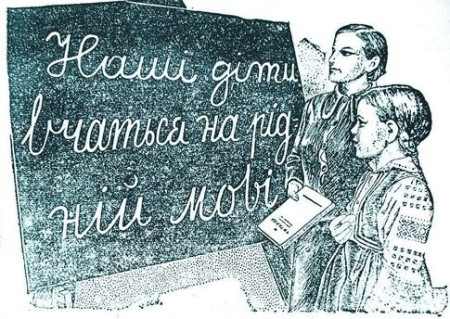 Наші діти
вчаться на рід-
ній мові